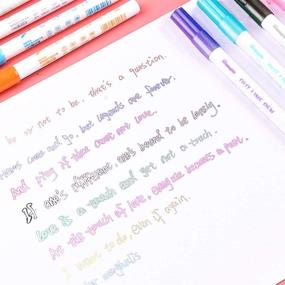 be or not to be. that's a question.
Heros come and go, but legends are forever.
And pity if that want are love.
If one's different, one's bound to be lonely.
Love is a touch and yet not a touch.
At the touch of love, everyone becomes a poet.
I want to do, even if again.